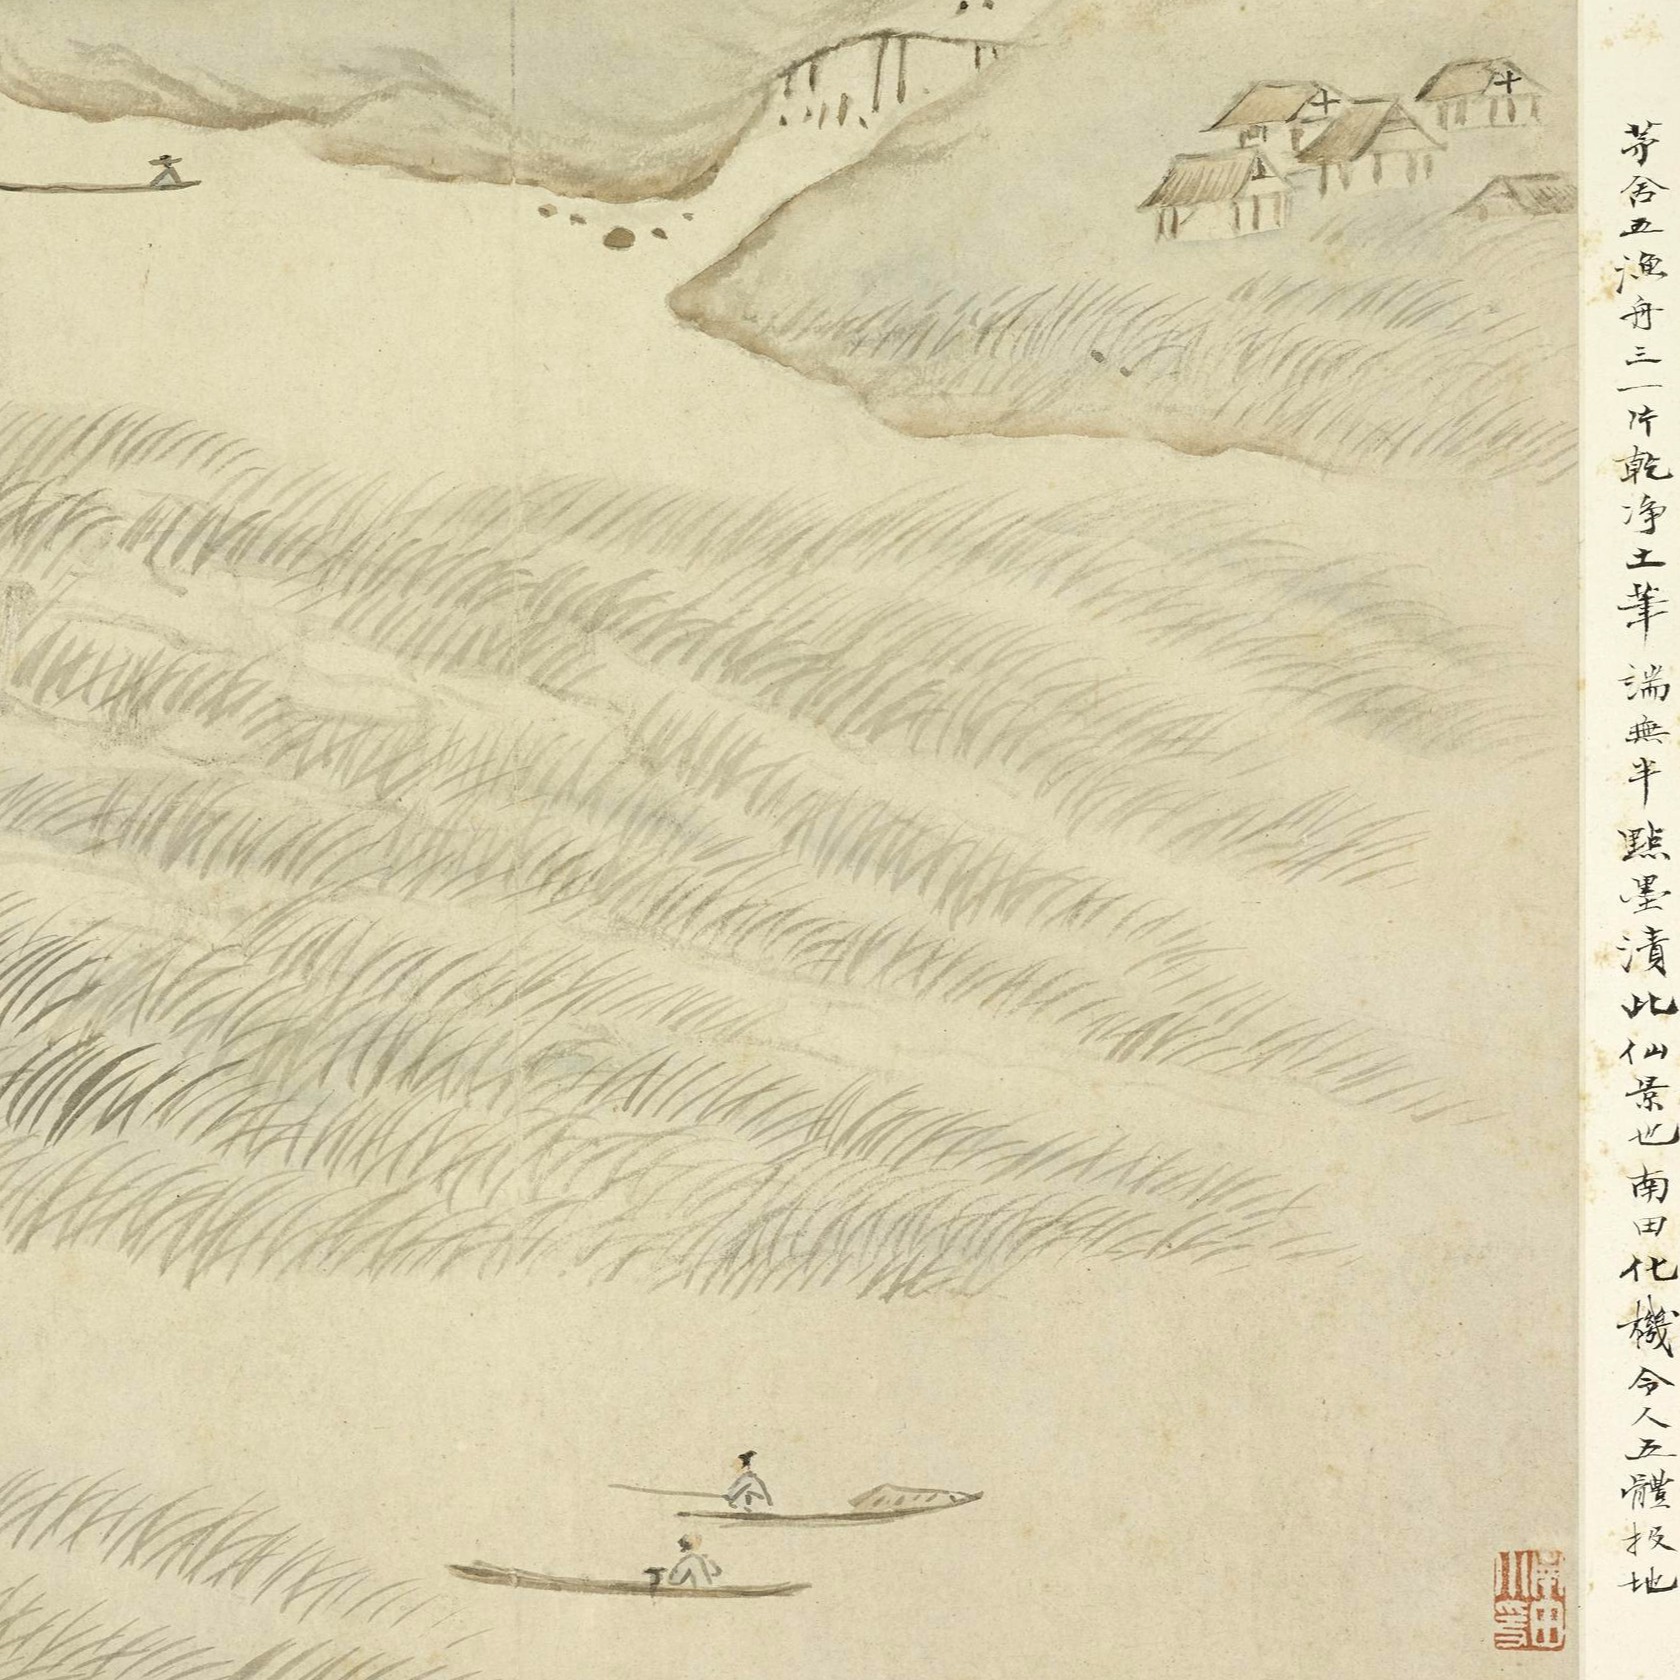 茅舍五漁舟三一片乾淨土筆端無半點墨漬此仙景也南田化機令人五體投地
南田小筆